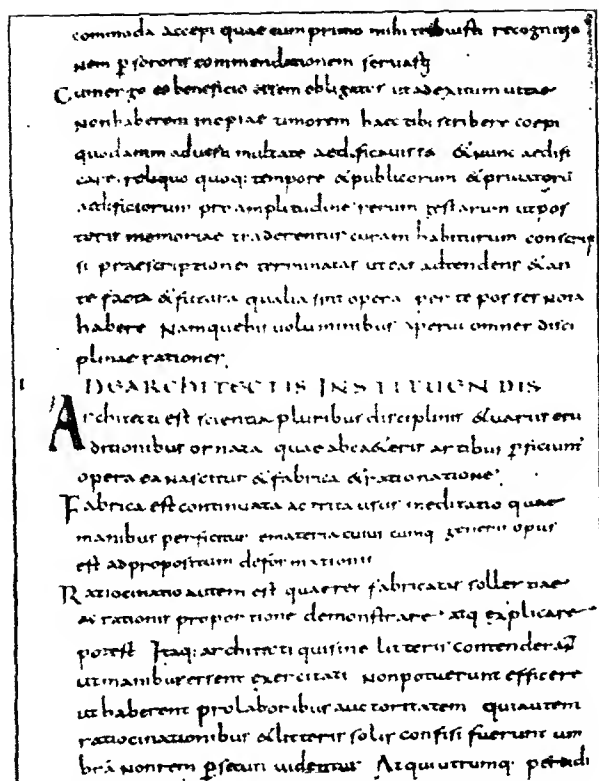 commoda accepi quae cum primo mihi tribuisti recognitio
nem p sororis commendationem servasti
Cum ergo eo beneficio essem obligatus ut ad exitum uitae
non haberem inopiae timorem haec tibi scribere coepi
quod animaduerti multa te aedificauisse & nunc aedifi
care. reliquo quoq: tempore & publicorum & priuatorū
aedificiorum pro amplitudine rerum gestarum ut pos
teris memoriae traderentur curam habiturum conscrip
si praescriptiones terminatas ut eas adtendens & an
te facta & futura qualia sint opera per te posses nota
habere Namque his uoluminibus aperui omnes disci
plinae rationes.
I DE ARCHITECTIS INSTITUENDIS
Architecti est scientia pluribus disciplinis & uariis eru
ditionibus ornata quae ab ca&eris artibus pficiunt
opera ea nascitur & fabrica & rationatione.
Fabrica est continuata ac trita usus meditatio quae
manibus perficitur e materia cuius cumq generis opus
est ad propositum deformationis
Ratiocinatio autem est quae res fabricatas sollertiae
ac rationis proportione demonstrare atq explicare
potest Itaq: architecti qui sine litteris contenderant
ut manibus essent exercitati Non potuerunt efficere
ut haberent pro laboribus auctoritatem qui autem
ratiocinationibus & litteris solis confisi fuerunt um
brā non rem psecuti uidentur At qui utrumq. perdidi